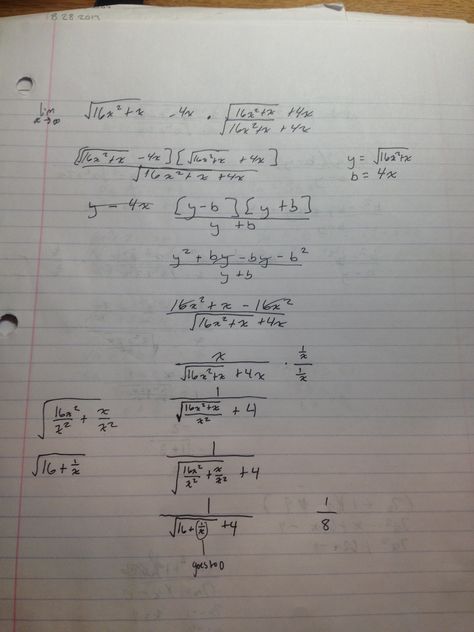 8.28.2017
lim x→∞ √(16x²+x) - 4x · (√(16x²+x) + 4x)/(√(16x²+x) + 4x)
[√(16x²+x) - 4x][√(16x²+x) + 4x]/(√(16x²+x) + 4x) y = √(16x²+x)
b = 4x
y = 4x [y-b][y+b]/(y+b)
(y² + by - by - b²)/(y+b)
(16x² + x - 16x²)/(√(16x²+x) + 4x)
x/(√(16x²+x) + 4x) · (1/x)/(1/x)
1/(√((16x²+x)/x²) + 4)
√(16x²/x² + x/x²)
1/(√(16x²/x² + x/x²) + 4)
√(16 + 1/x)
1/(√(16 + (1/x)) + 4) 1/8
goes to 0